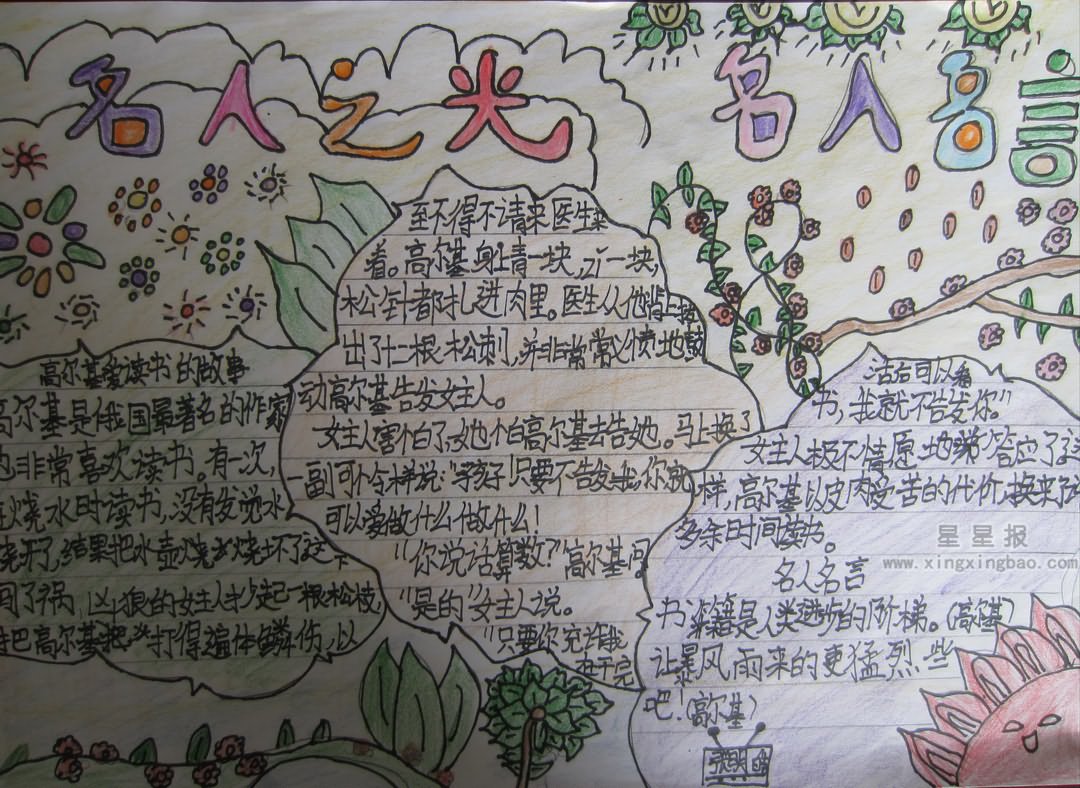 名人之光
名人名言
高尔基爱读书的故事
高尔基是俄国最著名的作家
也非常喜欢读书。有一次,
烧水时读书,没有发觉水
烧开了,结果把水壶烧烧坏了这下
闯了祸,凶狠的女主人抄起一根松枝,
把高尔基打得遍体鳞伤,以
至不得不请来医生
着。高尔基身上青一块,一块,
松针都扎进肉里。医生从他背上
出了十二根松刺,并非常愤地鼓
动高尔基告发女主人。
女主人害怕了,她怕高尔基去告她。马上换了
一副可怜样说:“孩子!只要不告发我,你就
可以爱做什么做什么!
“你说话算数?”高尔基问。
“是的”女主人说。
“只要你充许我
在干完
活后可以看
书,我就不告发你。”
女主人极不情愿地答应了这
样,高尔基以皮肉受苦的代价,换来了
多余时间读书。
名人名言
书籍是人类进步的阶梯。(高尔基)
让暴风雨来的更猛烈些
吧!(高尔基)
星星报
www.xingxingbao.com